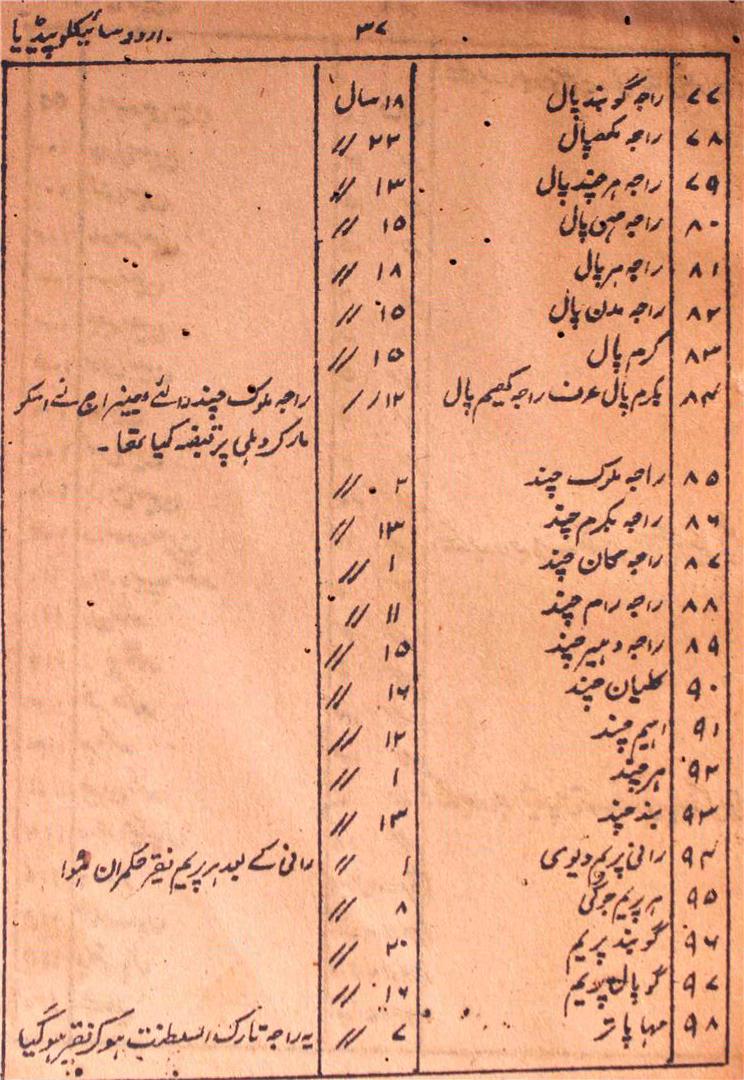 ۳۷ اردو سائیکلوپیڈیا
۷۷ راجہ گوبند پال ۱۸ سال
۷۸ راجہ لکھپال ۲۲ //
۷۹ راجہ ہر چند پال ۱۳ //
۸۰ راجہ مہی پال ۱۵ //
۸۱ راجہ ہر پال ۱۸ //
۸۲ راجہ مدن پال ۱۵ //
۸۳ کرم پال ۱۵ //
۸۴ بکرم پال عرف راجہ کھیم پال ۱۲ // راجہ ملوک چند والئے نے اسکو
مار کر دہلی پر قبضہ کیا تھا۔
۸۵ راجہ ملوک چند ۲ //
۸۶ راجہ بکرم چند ۱۳ //
۸۷ راجہ کان چند ۱ //
۸۸ راجہ رام چند ۱۱ //
۸۹ راجہ دہیر چند ۱۵ //
۹۰ کلیان چند ۱۶ //
۹۱ اہیم چند ۱۲ //
۹۲ ہر چند ۱ //
۹۳ بند چند ۱۳ //
۹۴ رانی پریم دیوی ۱ // رانی کے بعد ہر پریم فقیر حکمران ہوا
۹۵ ہر پریم جوگی ۸ //
۹۶ گوبند پریم ۲۰ //
۹۷ گوپال پریم ۱۶ //
۹۸ مہا پاتر ۷ // یہ راجہ تارک السلطنت ہو کر فقیر ہو گیا